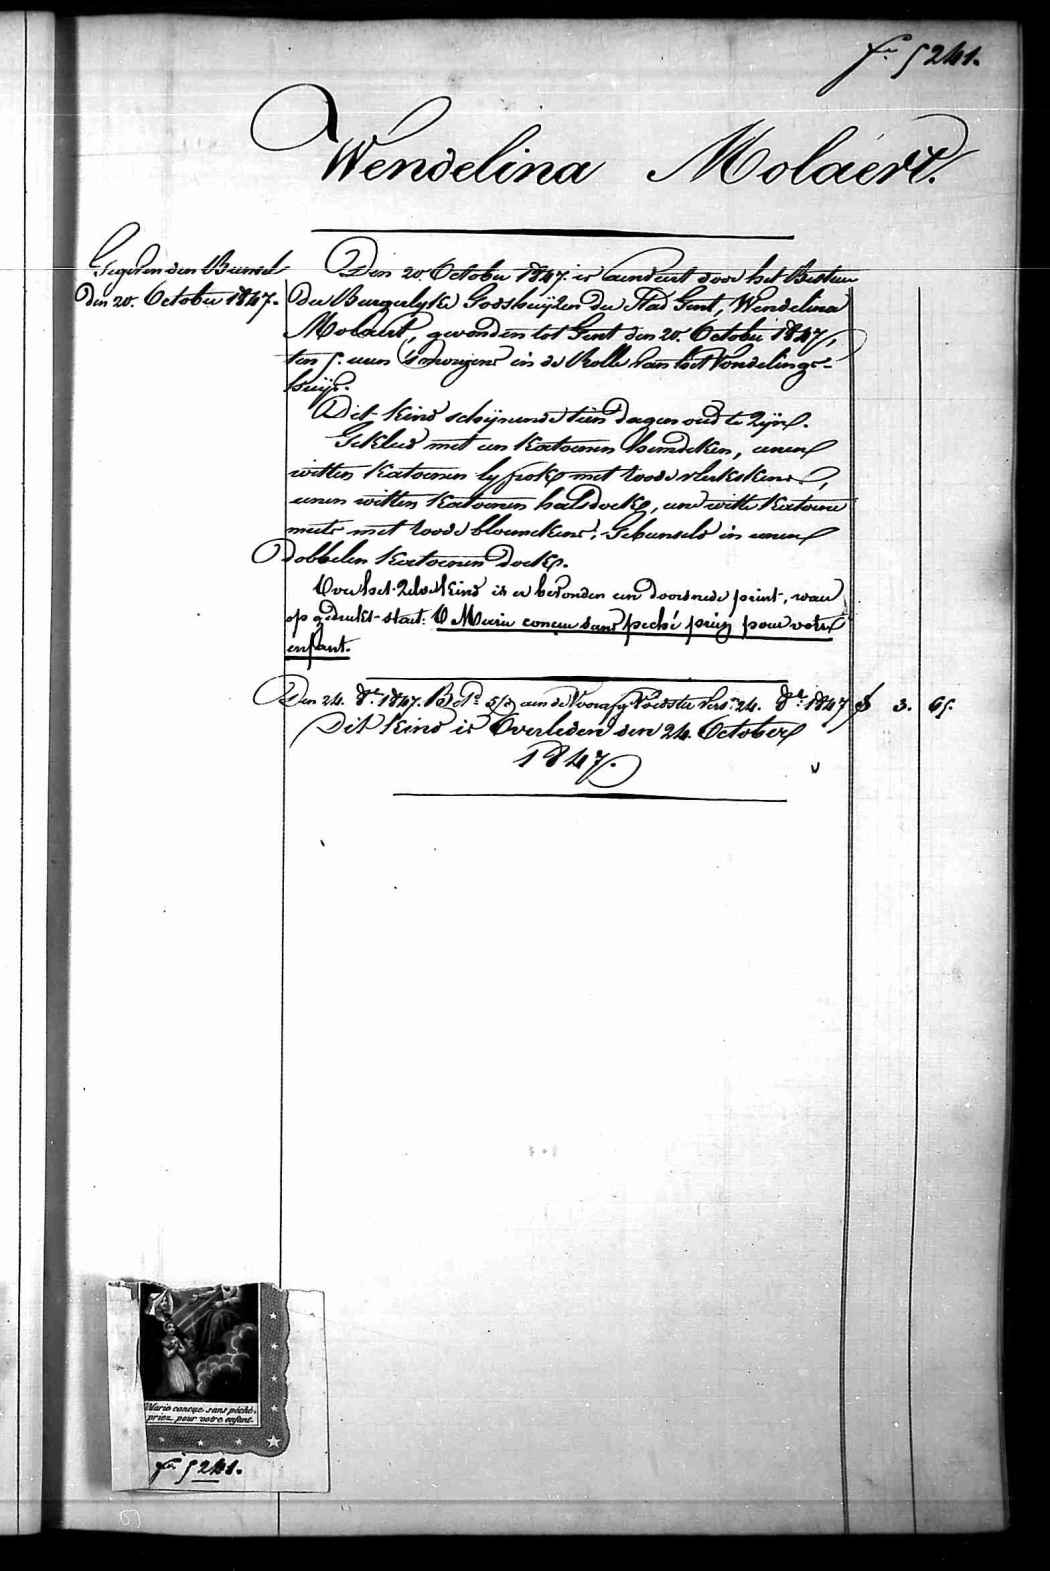 fo. 5241.
Wendelina Molaert.
Gegeven den Bussel
den 20. October 1847.
Den 20. October 1847. is aenveirt door het Bestuer
der Burgerlyke Godshuijzen der Stad Gent, Wendelina
Molaert, gevonden tot Gent den 20. October 1847,
ten 5. uren 's morgens in de Rolle van het Vondelings-
huijs.
Dit kind schijnende tien dagen oud te zijn.
Gekleed met een katoenen hemdeken, eenen
witten katoenen lyfrok met roode vlekskens,
eenen witten katoenen halsdoek, eene witte katoene
muts met roode bloemekens, Gebunseld in eenen
dobbelen katoenen doek.
Over het zelve kind is er bevonden een doorsnede prent, waer
op gedrukt staet: O Marie concue sans peché priez pour votre
enfant.
Den 24. 8er. 1847. aen de Voedster 24. 8er. 1847 3. 65.
Dit kind is Overleden den 24 October
1847.
Marie conçue sans péché,
priez pour votre enfant.
fo. 5241.